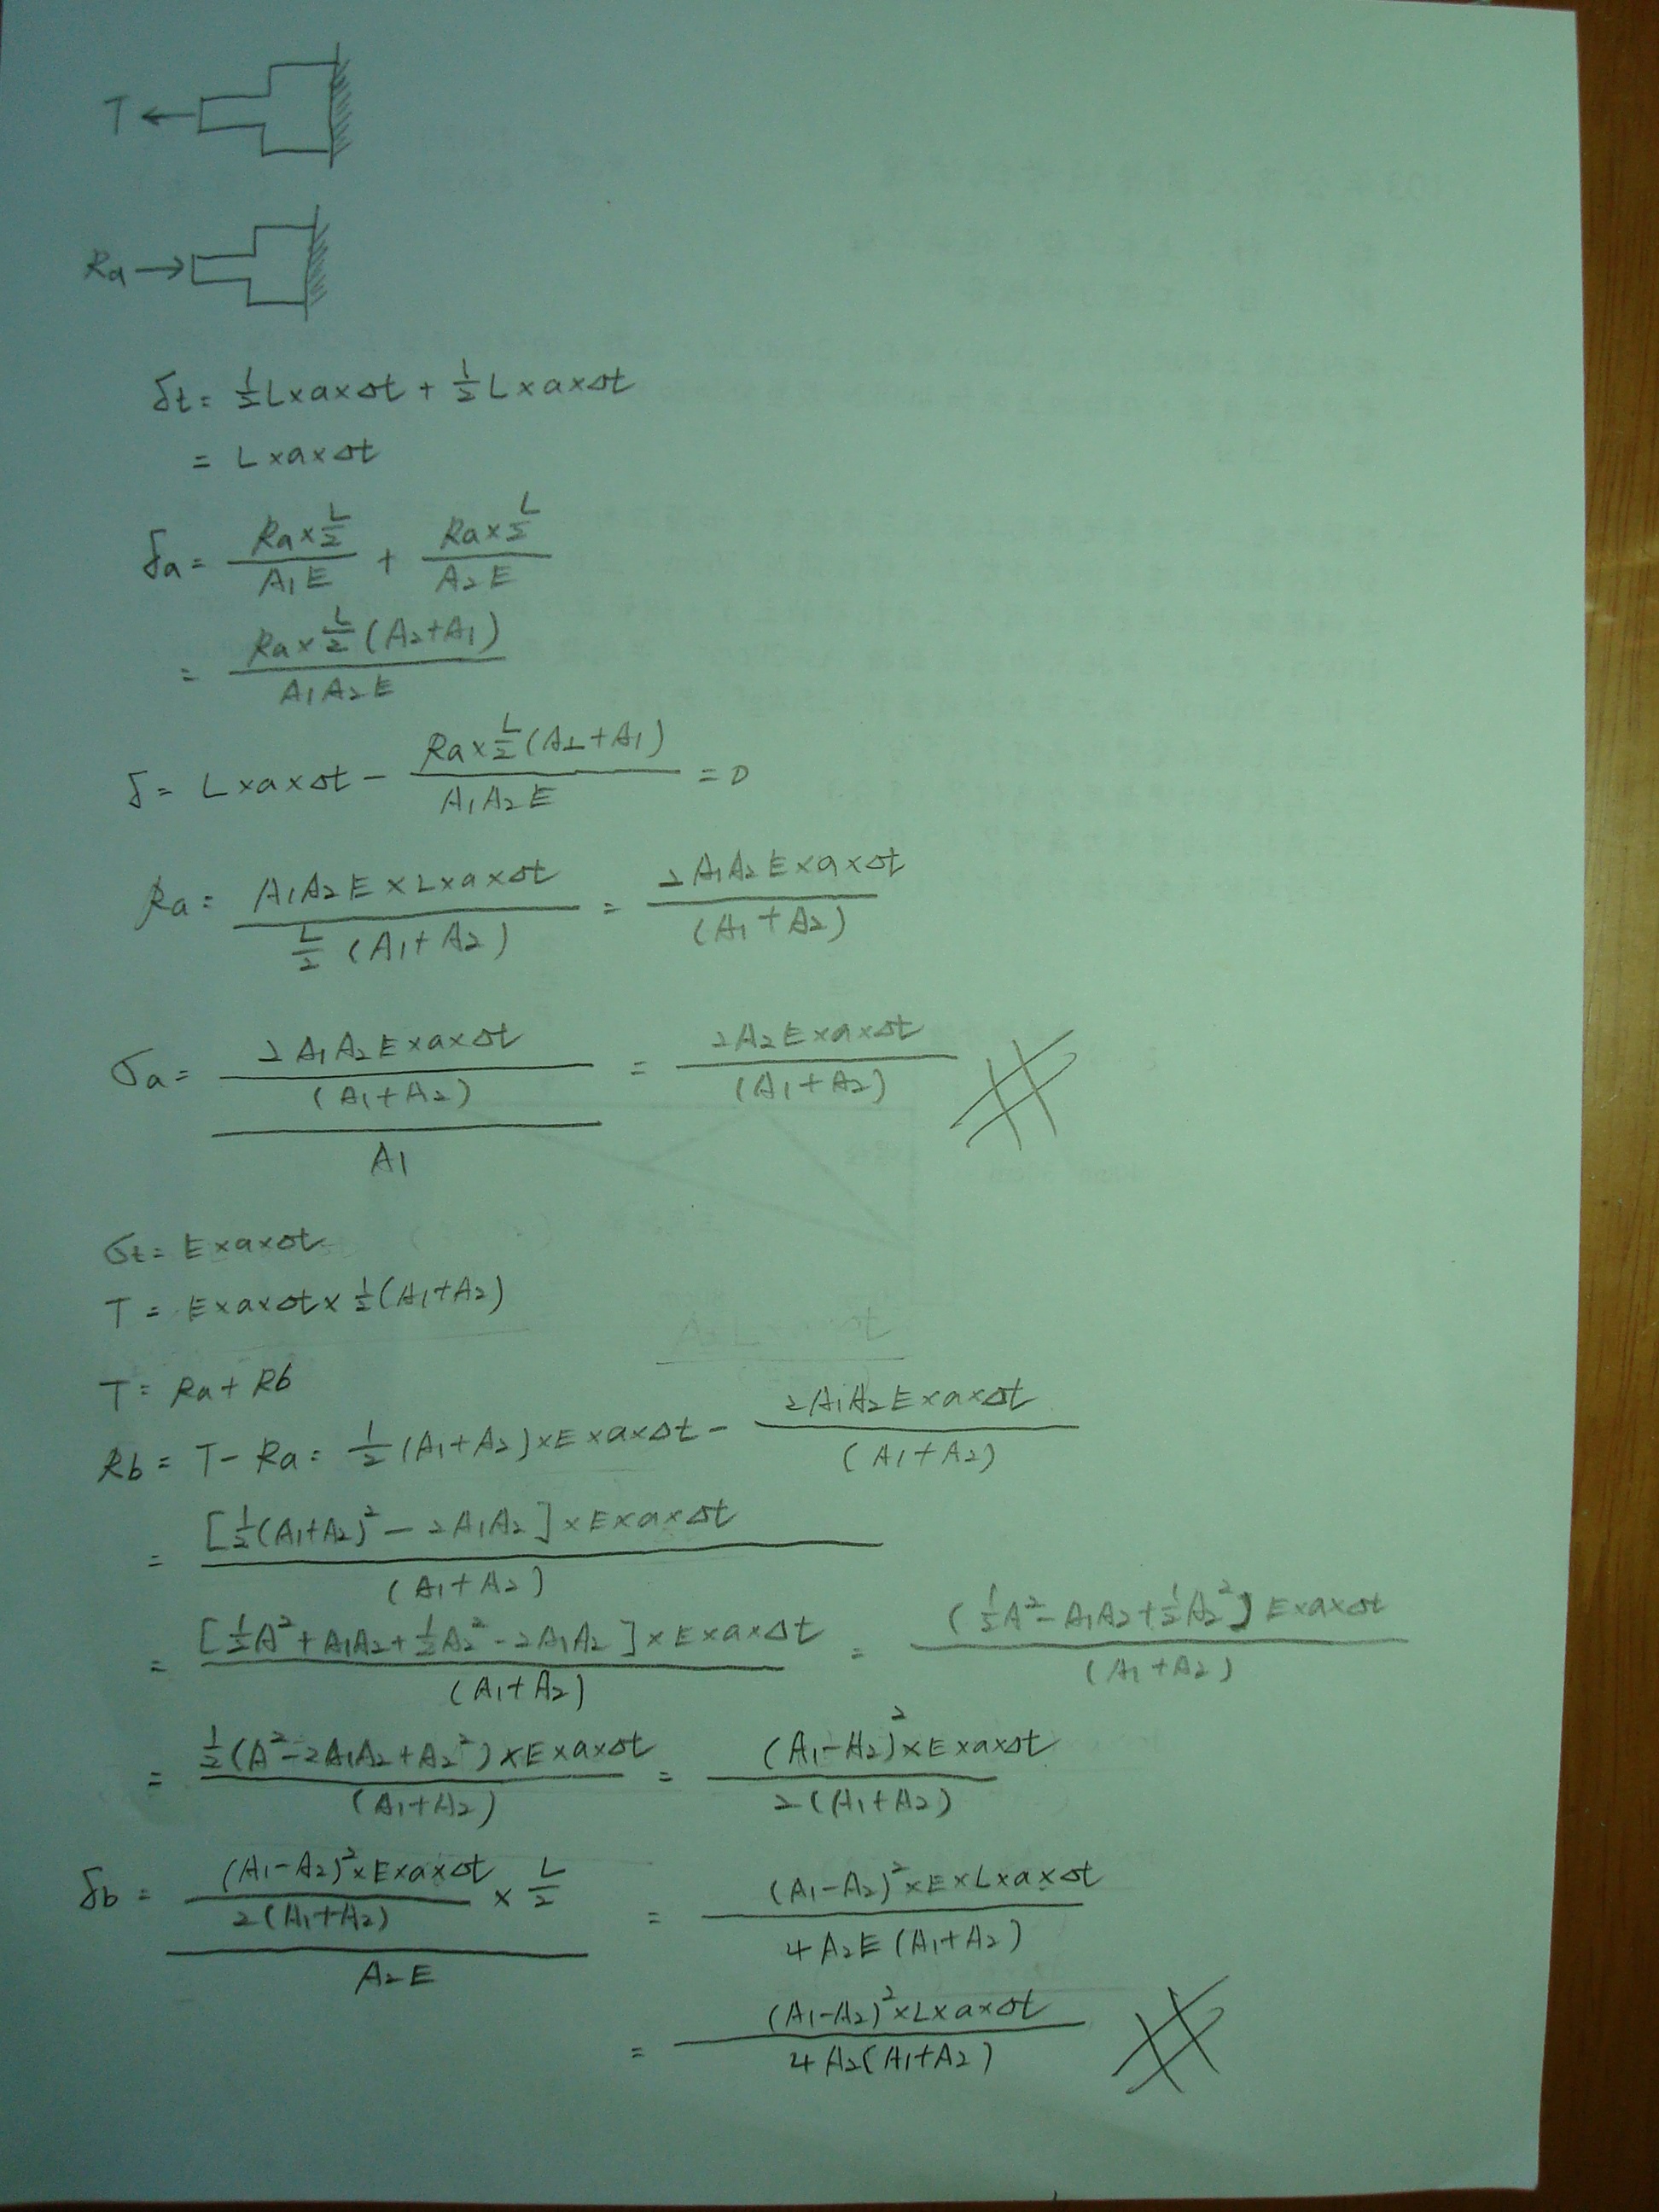 T ←
Ra →
δt = ½L×a×Δt + ½L×a×Δt
= L×a×Δt
δa = (Ra×L/2)/(A1E) + (Ra×L/2)/(A2E)
= (Ra×L/2(A2+A1))/(A1A2E)
δ = L×a×Δt − (Ra×L/2(A2+A1))/(A1A2E) = 0
Ra = (A1A2E×L×a×Δt)/(L/2(A1+A2)) = (2A1A2E×a×Δt)/(A1+A2)
σa = ((2A1A2E×a×Δt)/(A1+A2))/A1 = (2A2E×a×Δt)/(A1+A2) #
σt = E×a×Δt
T = E×a×Δt×½(A1+A2)
T = Ra+Rb
Rb = T−Ra = ½(A1+A2)×E×a×Δt − (2A1A2E×a×Δt)/(A1+A2)
= ([½(A1+A2)²−2A1A2]×E×a×Δt)/(A1+A2)
= ([½A²+A1A2+½A2²−2A1A2]×E×a×Δt)/(A1+A2) = ((½A²−A1A2+½A2²)E×a×Δt)/(A1+A2)
= (½(A²−2A1A2+A2²)×E×a×Δt)/(A1+A2) = ((A1−A2)²×E×a×Δt)/(2(A1+A2))
δb = (((A1−A2)²×E×a×Δt)/(2(A1+A2))×L/2)/(A2E) = ((A1−A2)²×E×L×a×Δt)/(4A2E(A1+A2))
= ((A1−A2)²×L×a×Δt)/(4A2(A1+A2)) #